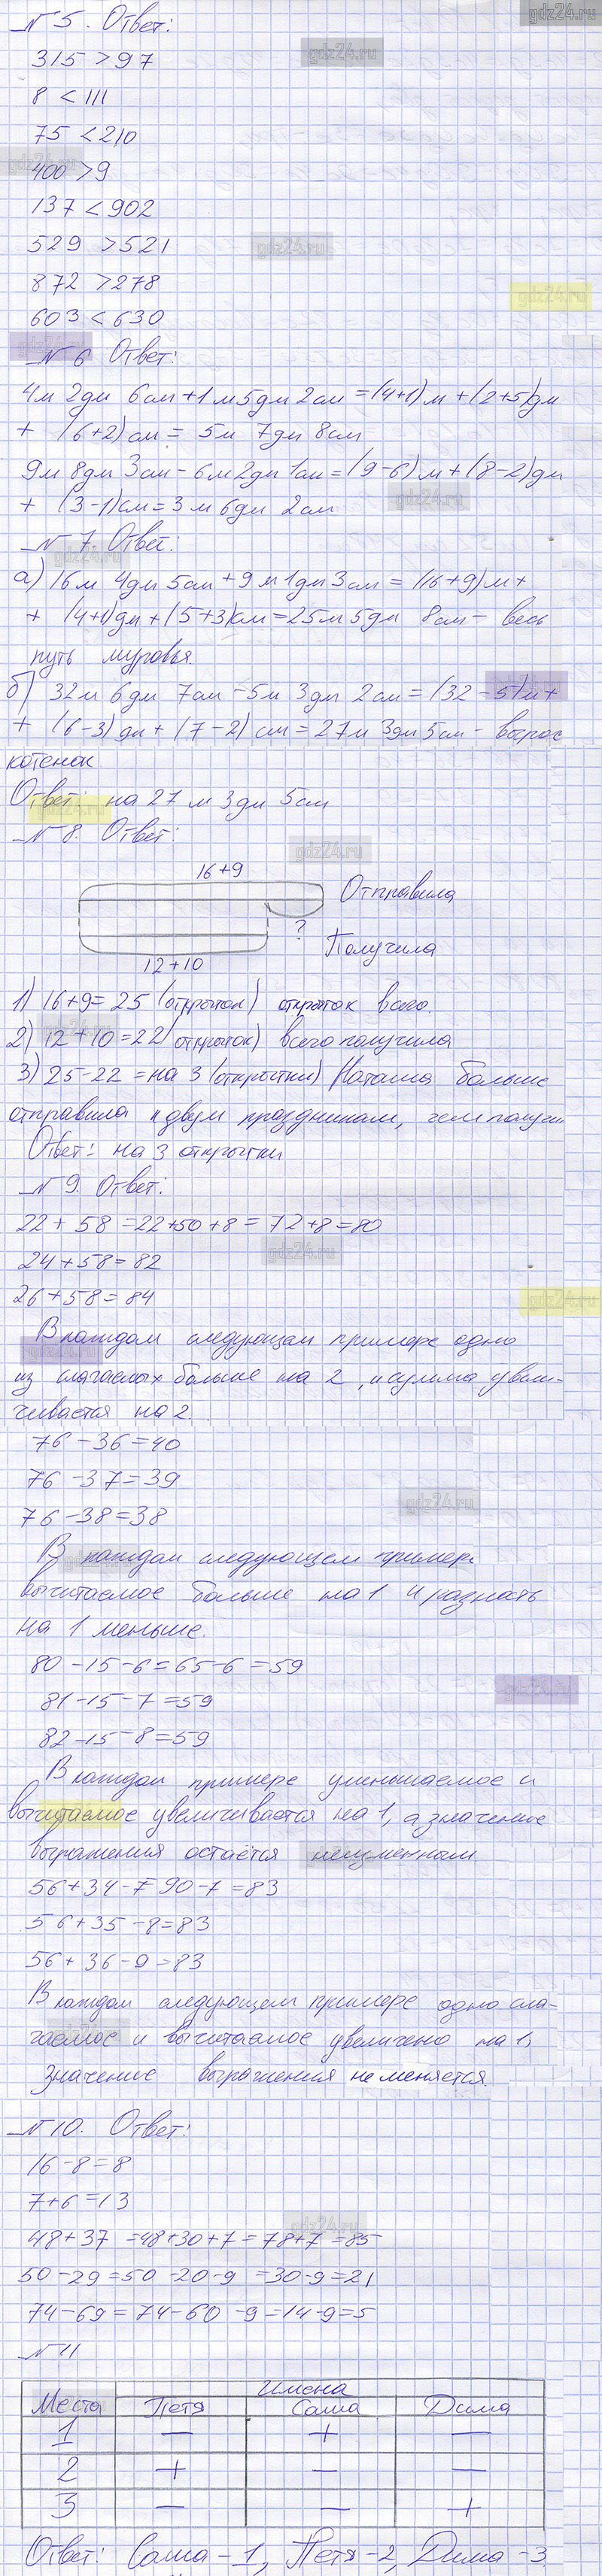 № 5. Ответ:
315 > 97
8 < 111
75 < 210
400 > 9
137 < 902
529 > 521
872 > 278
603 < 630
№ 6 Ответ:
4м 2дм 6см + 1м 5дм 2см = (4+1)м + (2+5)дм
+ (6+2)см = 5м 7дм 8см
9м 8дм 3см - 6м 2дм 1см = (9-6)м + (8-2)дм
+ (3-1)см = 3м 6дм 2см
№ 7 Ответ:
а) 16м 4дм 5см + 9м 1дм 3см = (16+9)м +
+ (4+1)дм + (5+3)см = 25м 5дм 8см - весь
путь муровья.
б) 32м 6дм 7см - 5м 3дм 2см = (32-5)м +
+ (6-3)дм + (7-2)см = 27м 3дм 5см - вырос
котенок
Ответ: на 27м 3дм 5см
№ 8. Ответ:
16+9
Отправила
?
Получила
12+10
1) 16+9=25 (открыток) открыток всего.
2) 12+10=22 (открыток) всего получила
3) 25-22 = на 3 (открытки) Наташа больше
отправила к двум праздникам, чем получи
Ответ: на 3 открытки
№ 9. Ответ:
22 + 58 = 22+50+8 = 72+8=80
24+58=82
26+58=84
В каждом следующем примере одно
из слагаемых больше на 2, и сумма увели-
чивается на 2.
76-36=40
76-37=39
76-38=38
В каждом следующем примере
вычитаемое больше на 1 и разность
на 1 меньше.
80-15-6=65-6=59
81-15-7=59
82-15-8=59
В каждом примере уменьшаемое и
вычитаемое увеличивается на 1, а значение
выражения остаётся неизменным
56+34-7=90-7=83
56+35-8=83
56+36-9=83
В каждом следующем примере одно сла-
гаемое и вычитаемое увеличено на 1,
значение выражения не меняется.
№ 10. Ответ:
16-8=8
7+6=13
48+37=48+30+7=78+7=85
50-29=50-20-9=30-9=21
74-69=74-60-9=14-9=5
№ 11
Имена
Места Петя Саша Дима
1 - + -
2 + - -
3 - - +
Ответ: Саша - 1, Петя - 2, Дима - 3
gdz24.ru